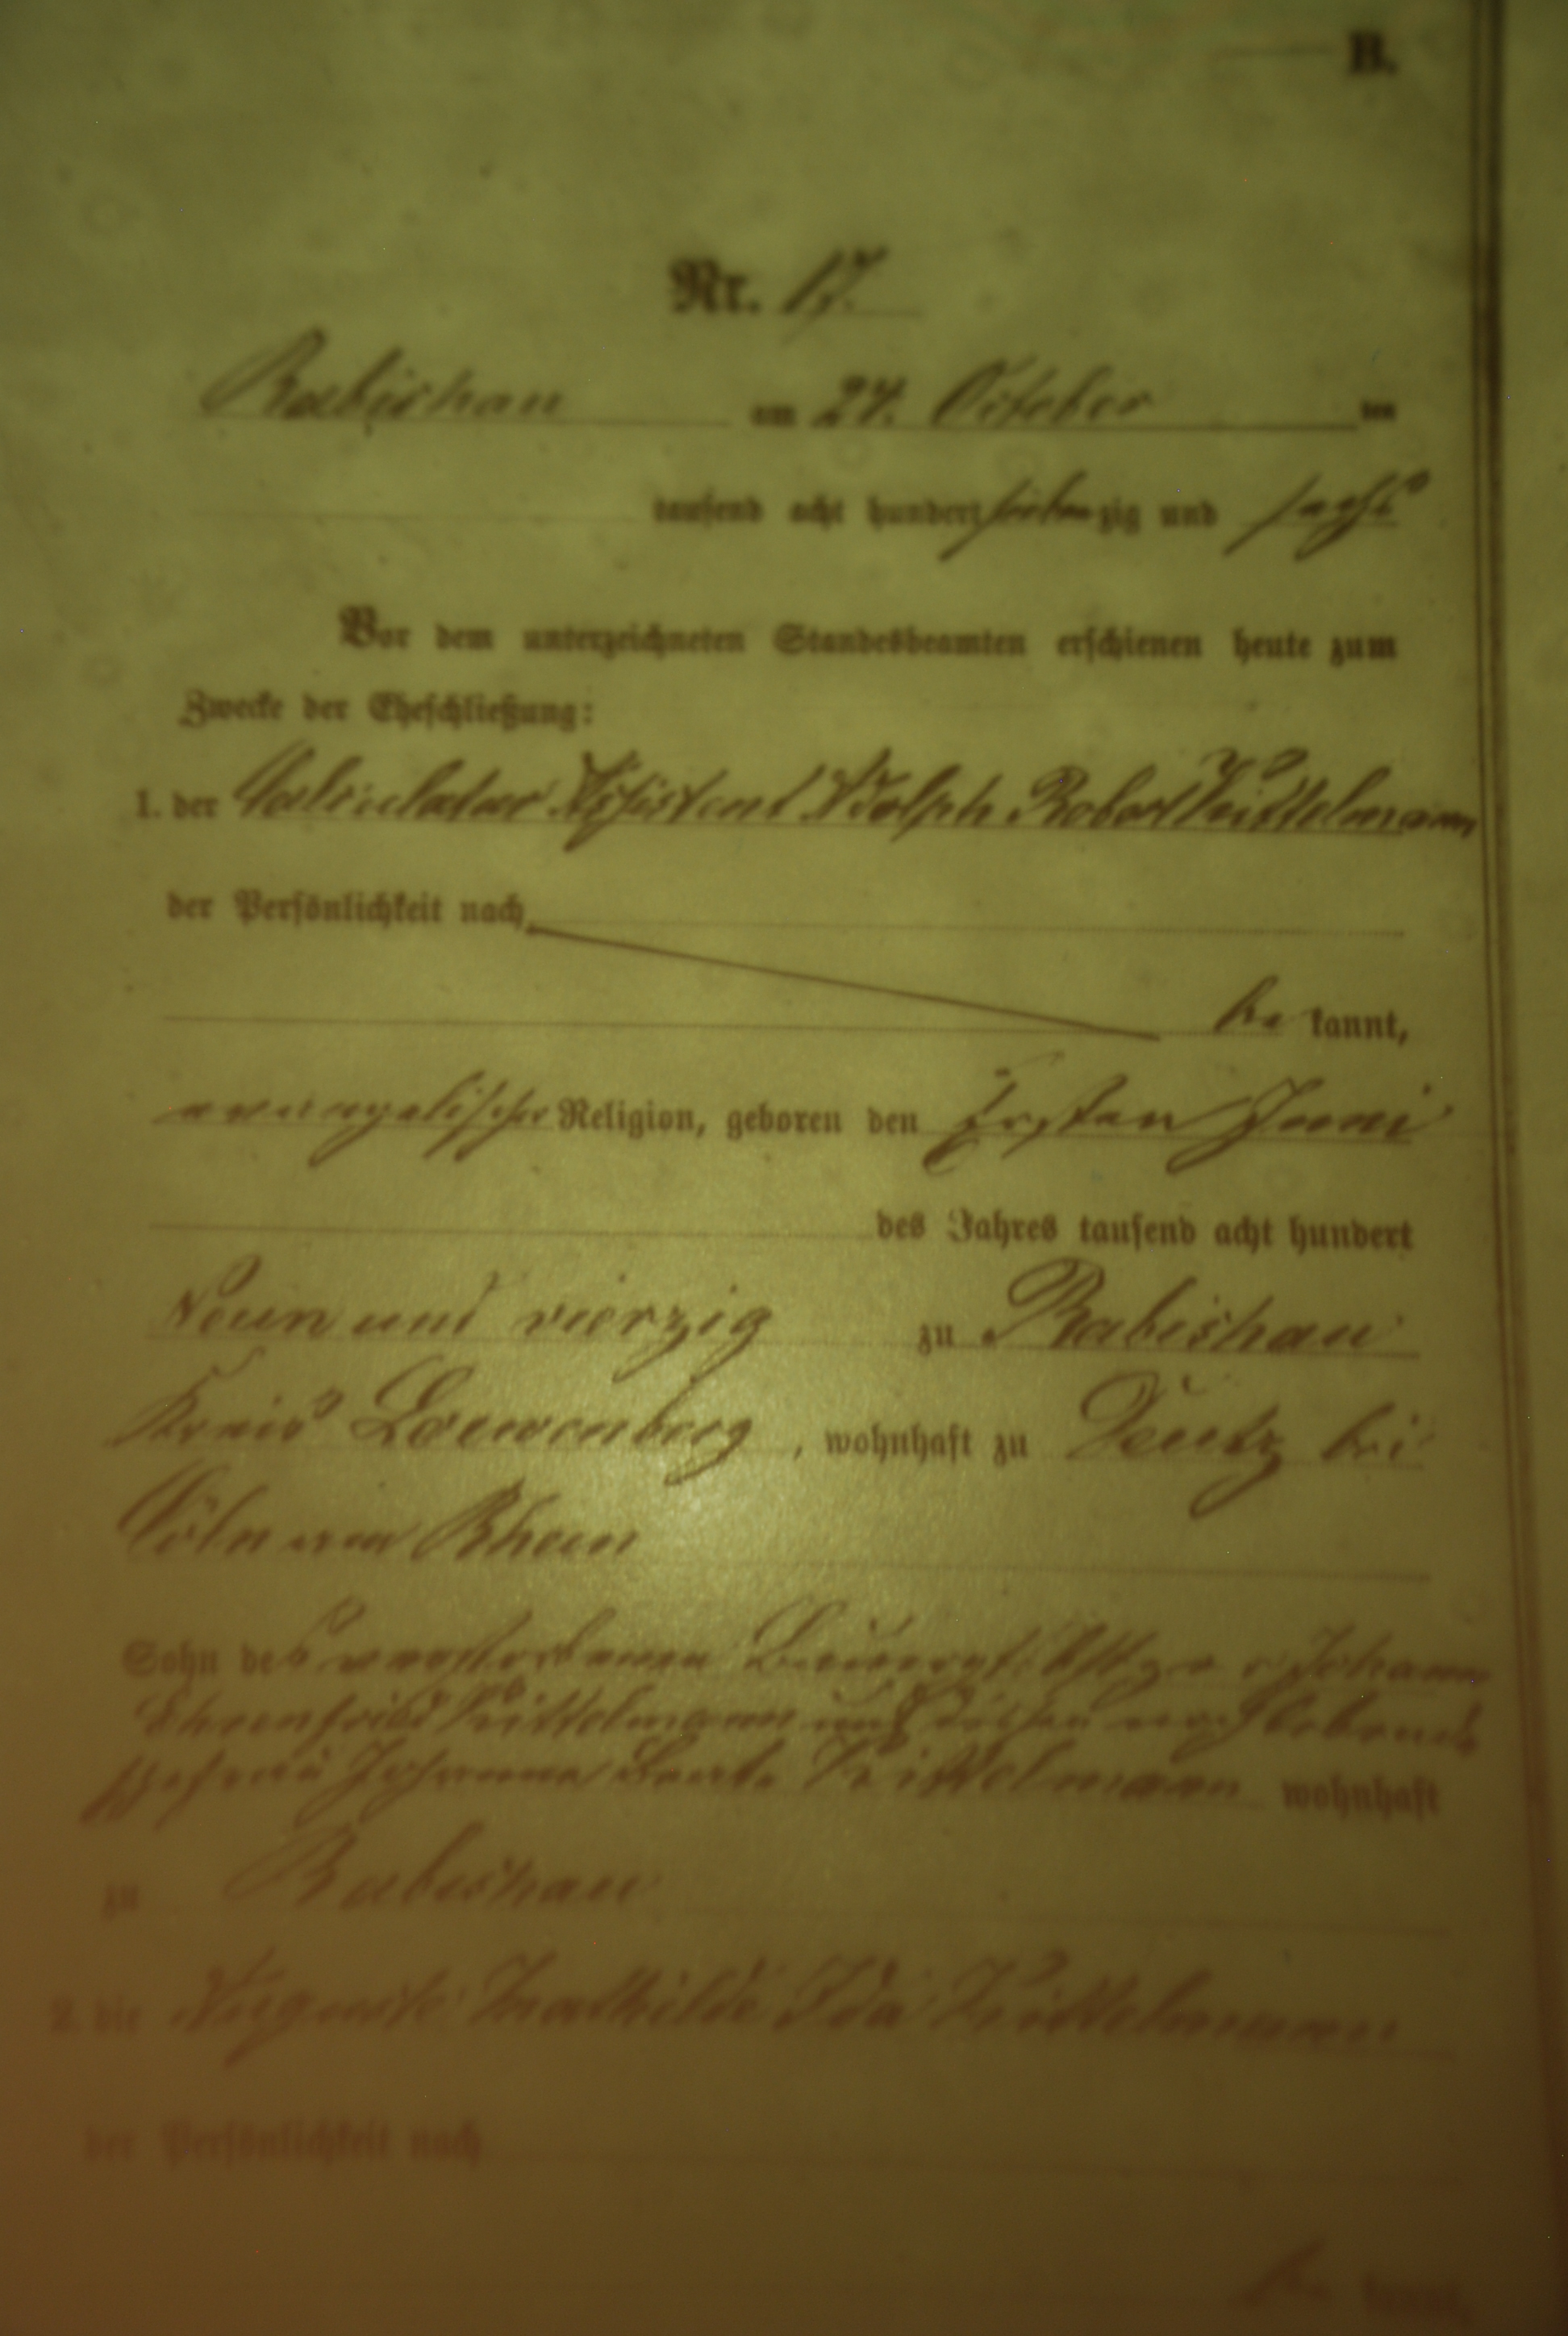 B.
Nr. 17.
Rabishau am 24. October ten
tausend acht hundert siebenzig und sechs
Vor dem unterzeichneten Standesbeamten erschienen heute zum
Zwecke der Eheschließung:
1. der Calculatur Assistent Adolph Robert Trittelmann
der Persönlichkeit nach
be kannt,
evangelischer Religion, geboren den Ersten Juni
des Jahres tausend acht hundert
Neun und vierzig zu Rabishau
Kreis Loewenberg, wohnhaft zu Deutz bei
Cöln am Rhein
Sohn des verstorbenen Johann
Ehrenfried Trittelmann und dessen noch lebende
Ehefrau Johanne Beate Trittelmann wohnhaft
zu Rabishau
2. die Auguste Mathilde Ida Trittelmann
der Persönlichkeit nach
be kannt,